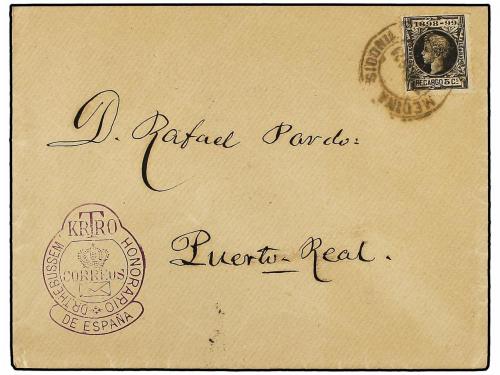 1898-99
RECARGO 5 Cs.
MEDINA SIDONIA
D. Rafael Pardo:
Puerto-Real.
KRTRO
CORREOS
DR. THEBUSSEM HONORARIO
DE ESPAÑA